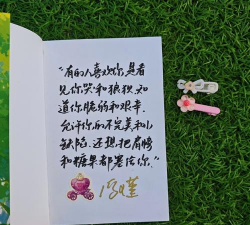 “有的人喜欢你,是看
见你哭和狼狈,知
道你脆弱和艰辛.
允许你的不完美和小
缺陷.还想把肩膀
和糖果都塞给你.”